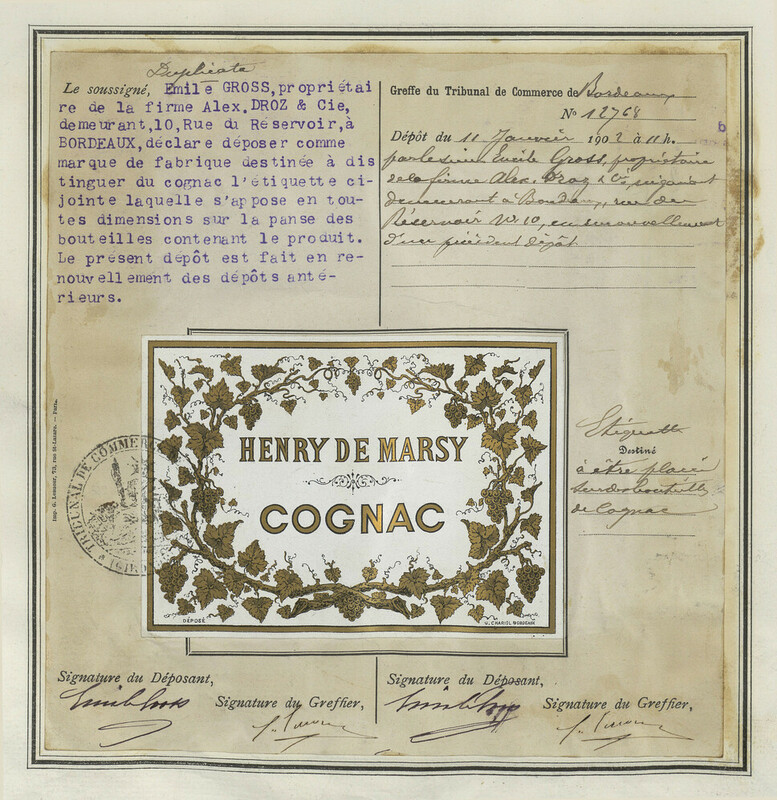 Duplicata
Le soussigné, Emile GROSS, propriétai
re de la firme Alex. DROZ & Cie,
demeurant, 10, Rue du Réservoir, à
BORDEAUX, déclare déposer comme
marque de fabrique destinée à dis
tinguer du cognac l'étiquette ci-
jointe laquelle s'appose en tou-
tes dimensions sur la panse des
bouteilles contenant le produit.
Le présent dépôt est fait en re-
nouvellement des dépôts anté-
rieurs.
Greffe du Tribunal de Commerce de Bordeaux
N° 12768
6
Dépôt du 11 Janvier 1902 à 11 h.
par le sieur Emile Gross, propriétaire
de la firme Alex. Droz & Cie,
demeurant à Bordeaux, rue du
Réservoir N° 10, en renouvellement
d'un précédent dépôt
HENRY DE MARSY
COGNAC
DÉPOSÉ
BORDEAUX
TRIBUNAL DE COMMERCE
Étiquette
Destiné
à être placée
sur des bouteilles
de Cognac
Signature du Déposant,
Emile Gross
Signature du Greffier,
Signature du Déposant,
Emile Gross
Signature du Greffier,